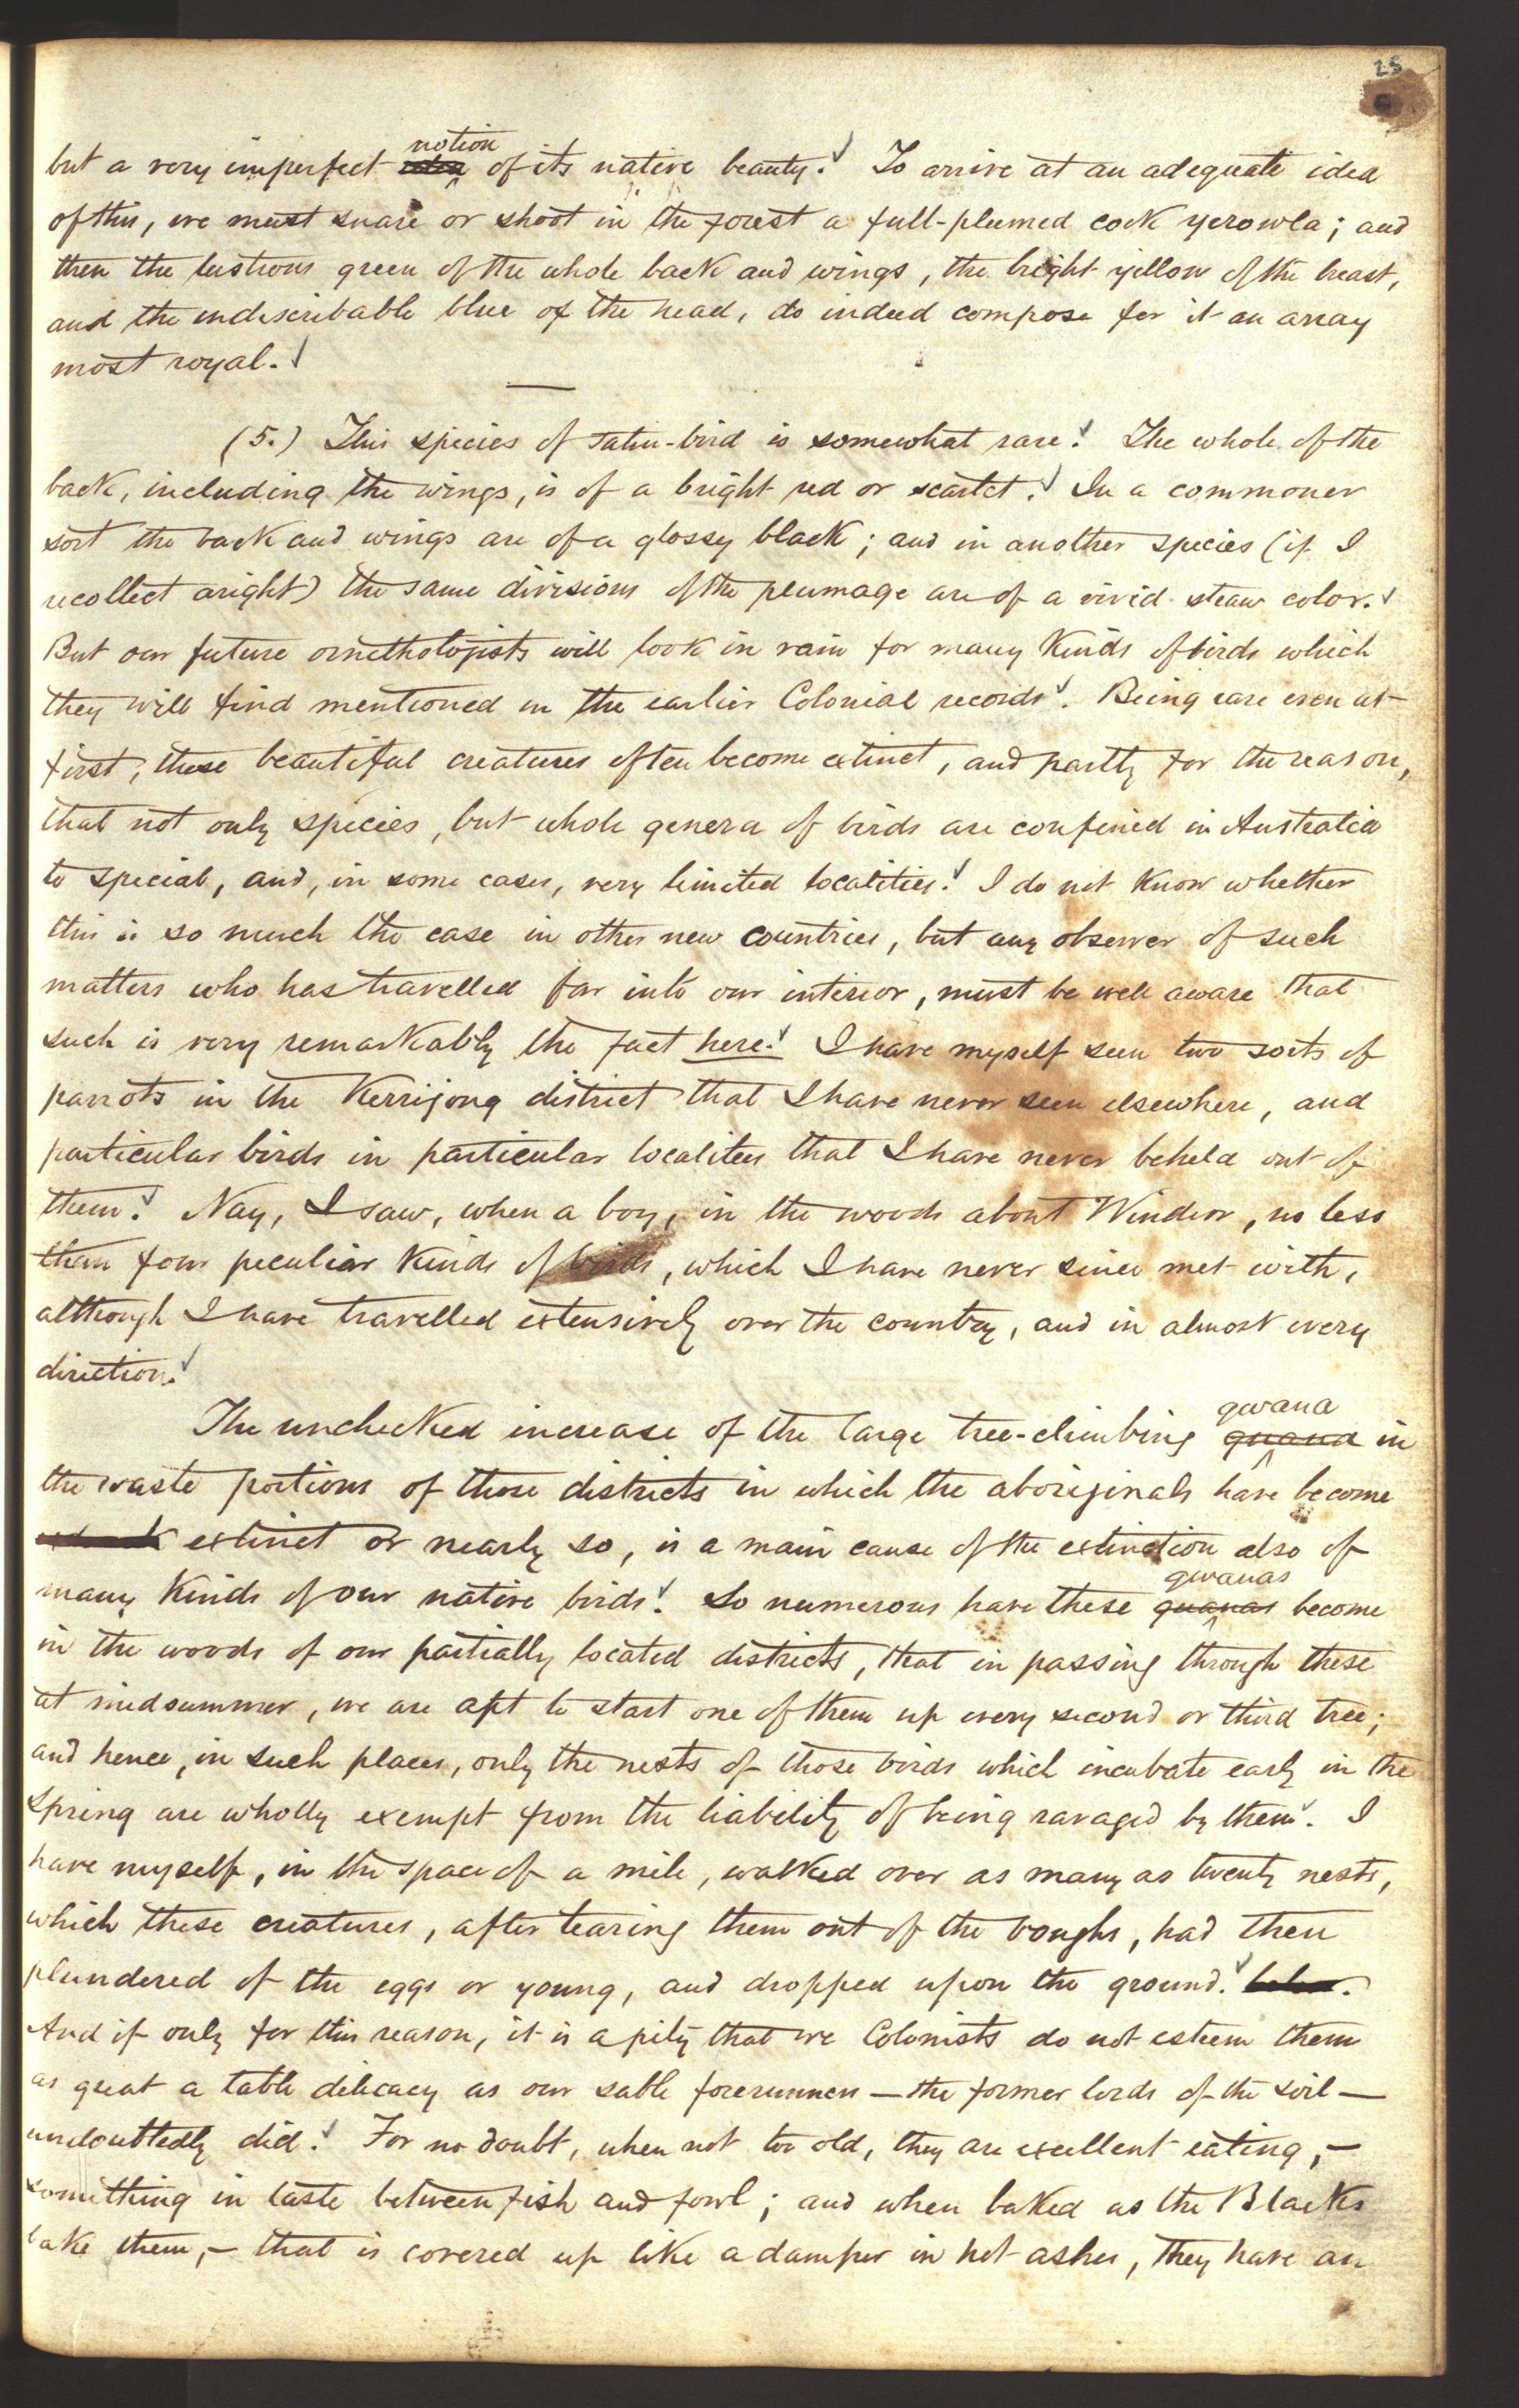 25
but a very imperfect idea notion of its native beauty. To arrive at an adequate idea
of this, we must snare or shoot in the forest a full-plumed cock yerowla; and
then the lustrous green of the whole back and wings, the bright yellow of the breast,
and the indescribable blue of the head, do indeed compose for it an array
most royal.
(5.) This species of satin-bird is somewhat rare. The whole of the
back, including the wings, is of a bright red or scarlet. In a commoner
sort the back and wings are of a glossy black; and in another species (if I
recollect aright) the same divisions of the plumage are of a vivid straw color.
But our future ornithologists will look in vain for many kinds of birds which
they will find mentioned in the earlier Colonial records. Being rare even at
first, these beautiful creatures often become extinct, and partly for the reason,
that not only species, but whole genera of birds are confined in Australia
to special, and, in some cases, very limited localities. I do not know whether
this is so much the case in other new countries, but any observer of such
matters who has travelled far into our interior, must be well aware that
such is very remarkably the fact here. I have myself seen two sorts of
parrots in the Kerrijong district that I have never seen elsewhere, and
particular birds in particular localites that I have never beheld out of
them. Nay, I saw, when a boy, in the woods about Windsor, no less
than four peculiar kinds of birds, which I have never since met with,
although I have travelled extensively over the country, and in almost every
direction.
The unchecked increase of the large tree-climbing guana gwana in
the waste portions of those districts in which the aboriginals have become
extinct or nearly so, is a main cause of the extinction also of
many kinds of our native birds. So numerous have these guanas gwanas become
in the woods of our partially located districts, that in passing through these
at midsummer, we are apt to start one of them up every second or third tree;
and hence, in such places, only the nests of those birds which incubate early in the
Spring are wholly exempt from the liability of being ravaged by them. I
have myself, in the space of a mile, walked over as many as twenty nests,
which these creatures, after tearing them out of the boughs, had then
plundered of the eggs or young, and dropped upon the ground.
And if only for this reason, it is a pity that we Colonists do not esteem them
as great a table delicacy as our sable forerunners — the former lords of the soil —
undoubtedly did. For no doubt, when not too old, they are excellent eating, —
something in taste between fish and fowl; and when baked as the Blacks
bake them, — that is covered up like a damper in hot ashes, they have an